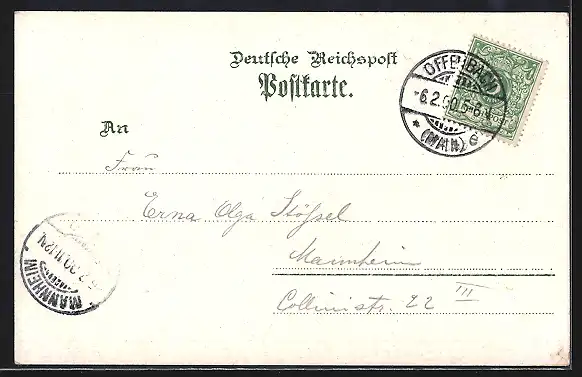 Deutsche Reichspost
Postkarte.
OFFENBACH
6.2.00.5-6
* (MAIN) e
An
Frau
Erna Olga Stössel
Mannheim
Collinistr. 22 III
MANNHEIM